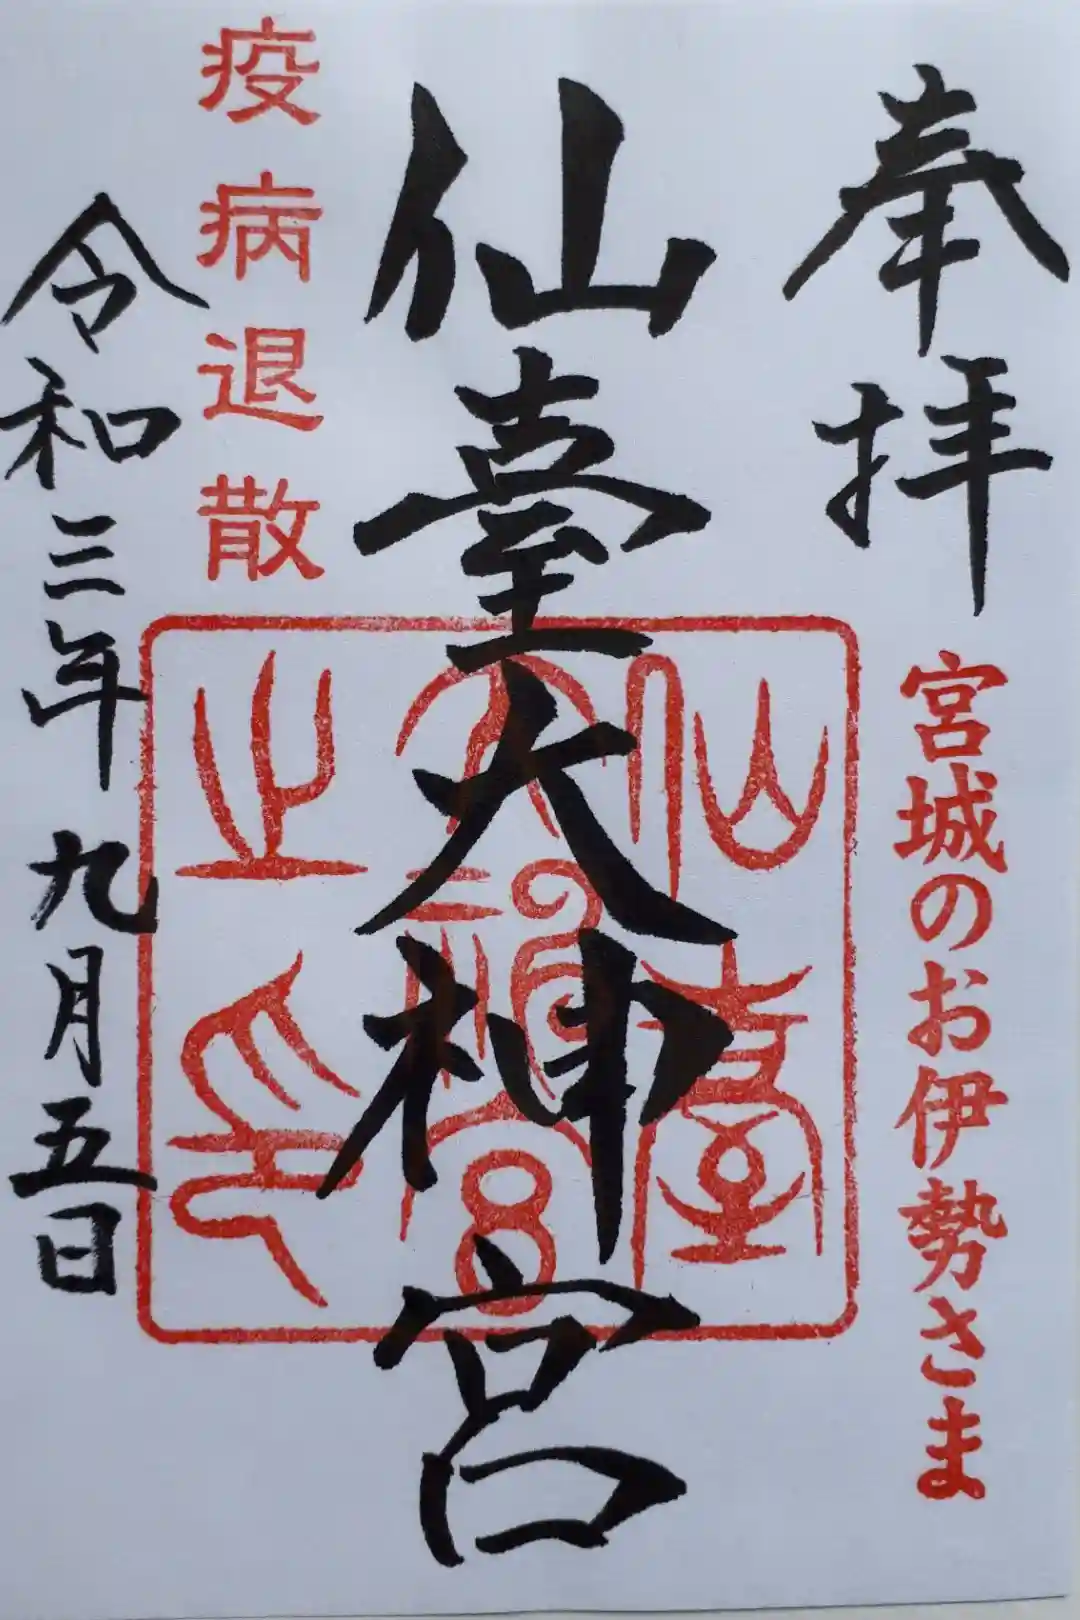 奉拝
宮城のお伊勢さま
仙臺大神宮
仙臺
大神宮
之印
疫病退散
令和三年九月五日